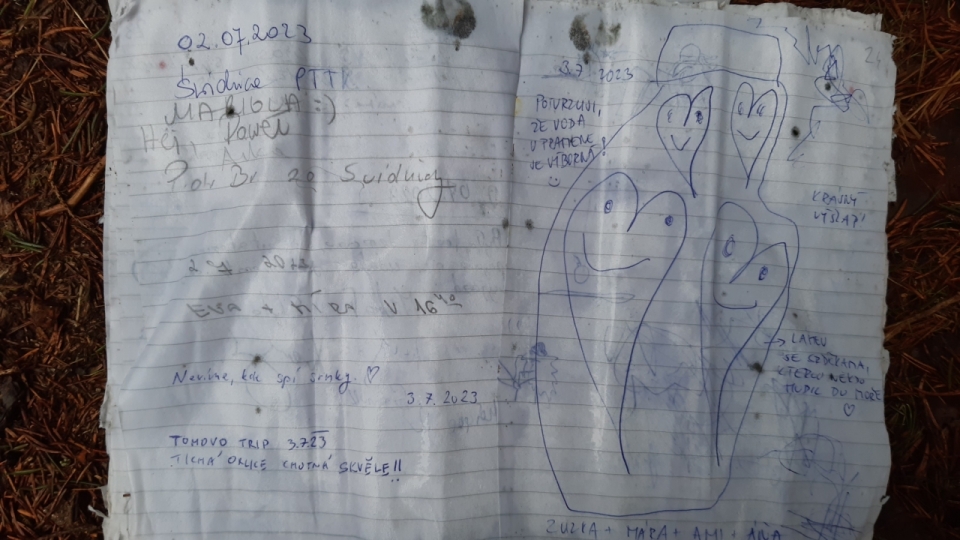 02.07.2023
Świdnica PTTK
MARIOLA :)
Hej, Paweł
ze Świdnicy
Eva + Míra V 16
Nevíme, kde spí srnky. ♡
3.7.2023
TOMOVO TRIP 3.7.23
TICHÁ ORLICE CHUTNÁ SKVĚLE!!
3.7. 2023
POTVRZENÍ,
ŽE VODA
V PRAMENE
JE VÝBORNÁ!
KRÁSNÝ
VÝŠLAP!
→ LAHEV
SE SRDÍČKAMA,
KTEROU NĚKDO
HODIL DO MOŘE
♡
ZUZKA + MÁŘA + AMI +